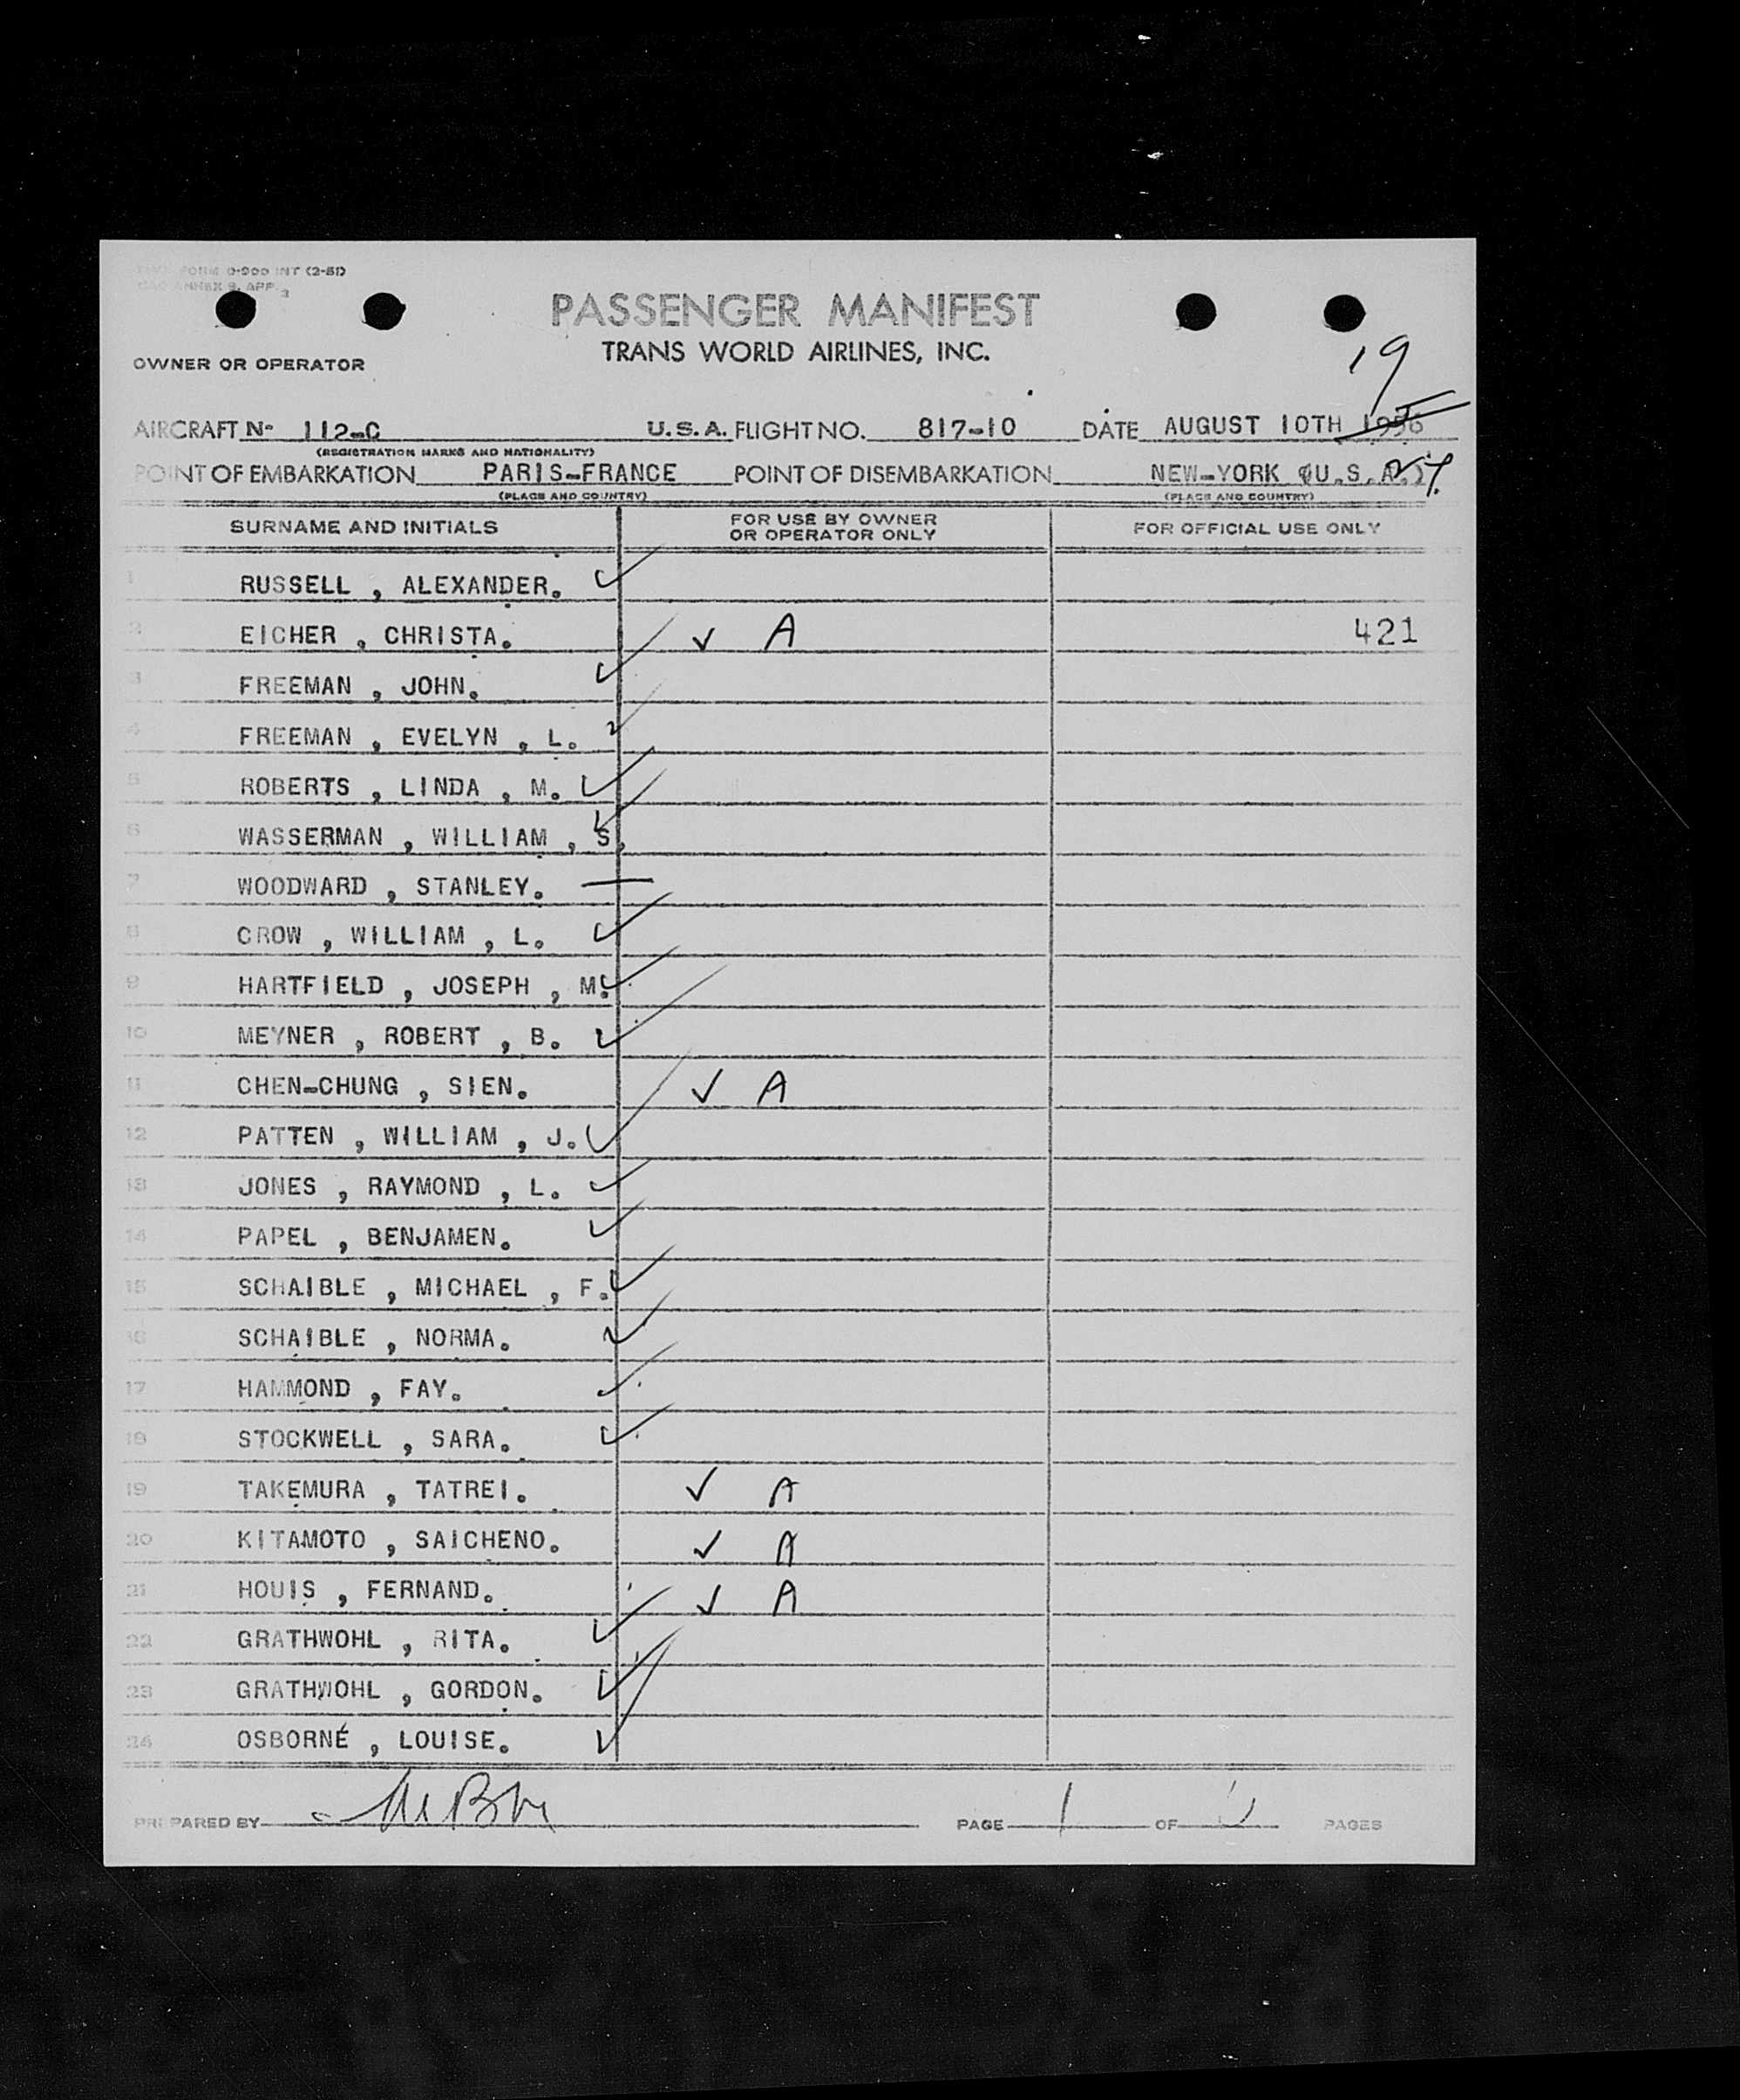 TWA FORM 0-900 INT (2-51)
ICAO ANNEX 9, APP. 3
PASSENGER MANIFEST
TRANS WORLD AIRLINES, INC.
OWNER OR OPERATOR
19
AIRCRAFT Nº 112-C U.S.A. FLIGHT NO. 817-10 DATE AUGUST 10TH 1956
(REGISTRATION MARKS AND NATIONALITY)
POINT OF EMBARKATION PARIS-FRANCE POINT OF DISEMBARKATION NEW-YORK (U.S.A.)
(PLACE AND COUNTRY) (PLACE AND COUNTRY)
SURNAME AND INITIALS FOR USE BY OWNER OR OPERATOR ONLY FOR OFFICIAL USE ONLY
1 RUSSELL , ALEXANDER. ✓
2 EICHER , CHRISTA. ✓ A 421
3 FREEMAN , JOHN. ✓
4 FREEMAN , EVELYN , L. ✓
5 ROBERTS , LINDA , M. ✓
6 WASSERMAN , WILLIAM , S. ✓
7 WOODWARD , STANLEY. —
8 CROW , WILLIAM , L. ✓
9 HARTFIELD , JOSEPH , M. ✓
10 MEYNER , ROBERT , B. ✓
11 CHEN-CHUNG , SIEN. ✓ A
12 PATTEN , WILLIAM , J. ✓
13 JONES , RAYMOND , L. ✓
14 PAPEL , BENJAMEN. ✓
15 SCHAIBLE , MICHAEL , F. ✓
16 SCHAIBLE , NORMA. ✓
17 HAMMOND , FAY. ✓
18 STOCKWELL , SARA. ✓
19 TAKEMURA , TATREI. ✓ A
20 KITAMOTO , SAICHENO. ✓ A
21 HOUIS , FERNAND. ✓ A
22 GRATHWOHL , RITA. ✓
23 GRATHWOHL , GORDON. ✓
24 OSBORNE , LOUISE. ✓
PREPARED BY PAGE 1 OF PAGES